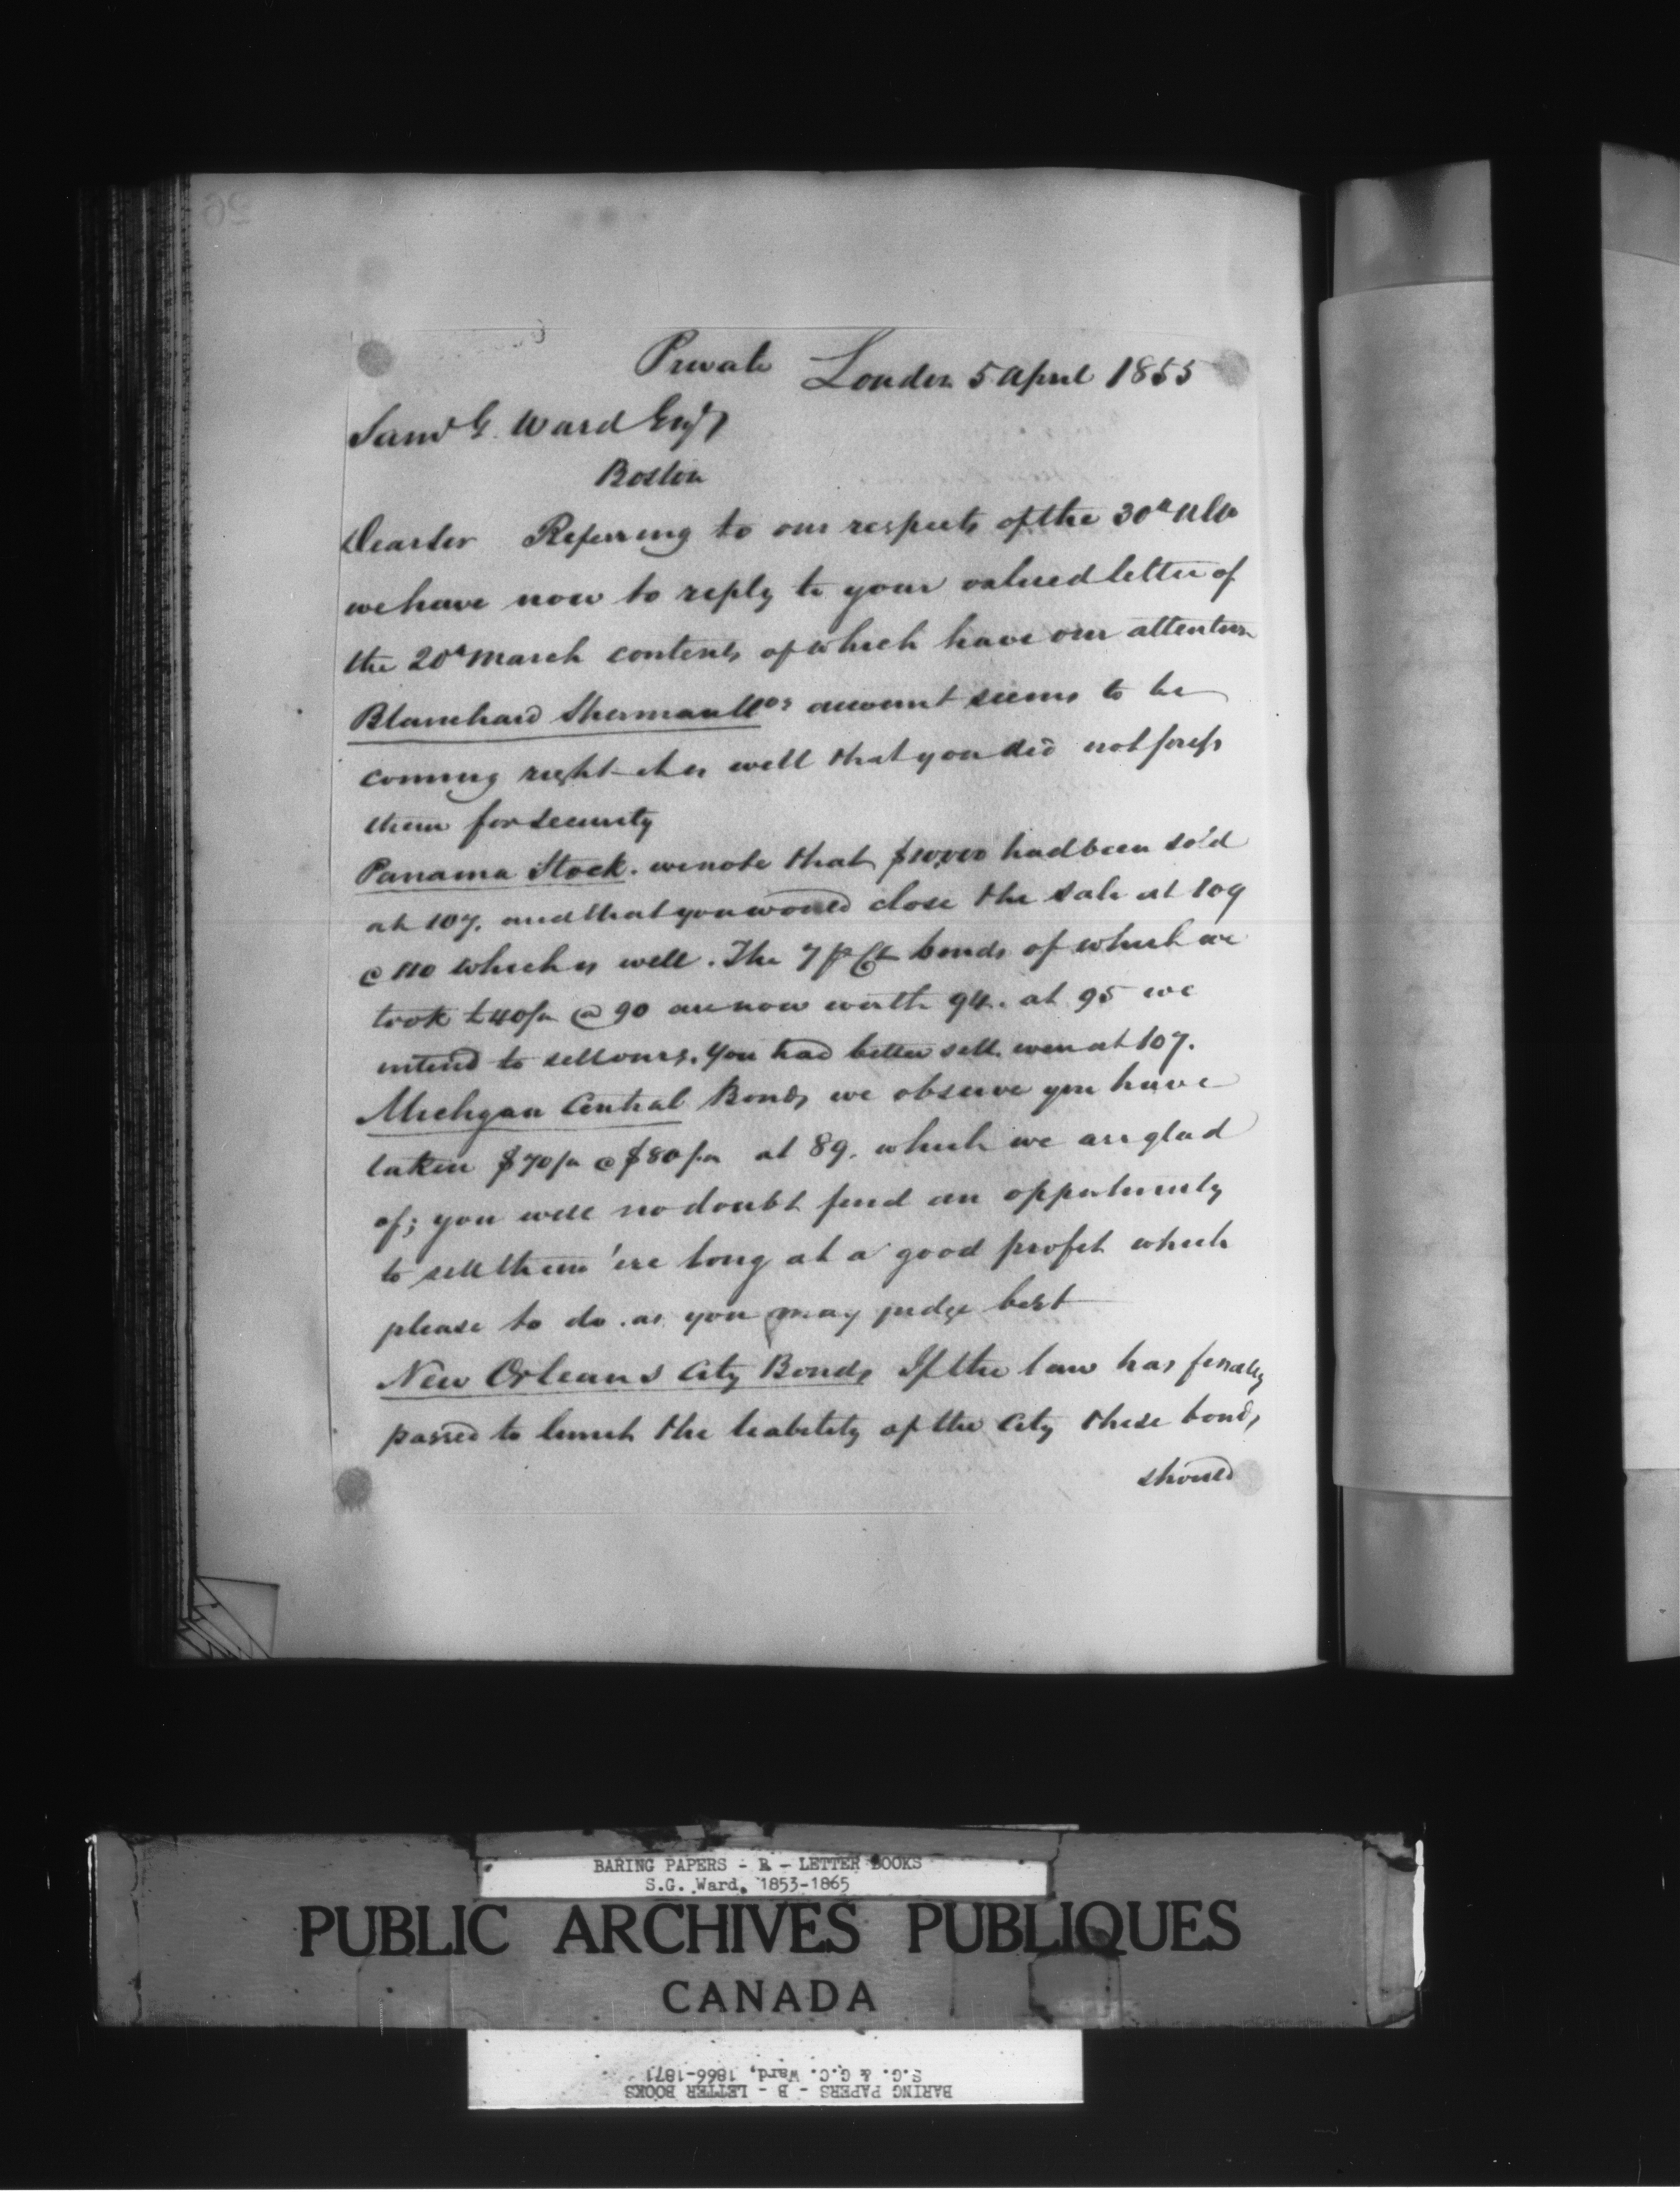 Private London 5 April 1855
Saml G. Ward Esqr
Boston
Dear Sir Referring to our respects of the 30th ulto
we have now to reply to your valued letter of
the 20th March contents of which have our attention
Blanchard Sherman & Cos account seems to be
coming right - it is well that you did not press
them for security
Panama Stock. we note that $10,000 had been sold
at 107. and that you would close the sale at 109
@ 110 which is well. The 7 p Ct bonds of which we
took £40/m @ 90 are now worth 94. at 95 we
intend to sell ours. You had better sell even at 107.
Michigan Central Bonds we observe you have
taken $70/m @ $80/m at 89. which we are glad
of; you will no doubt find an opportunity
to sell them 'ere long at a good profit which
please to do. as you may judge best
New Orleans City Bonds If the law has finally
passed to limit the liability of the City these bonds
should
BARING PAPERS - B - LETTER BOOKS
S.G. Ward, 1853-1865
PUBLIC ARCHIVES PUBLIQUES
CANADA
BARING PAPERS - B - LETTER BOOKS
S.G. & G.C. Ward, 1866-1871
26